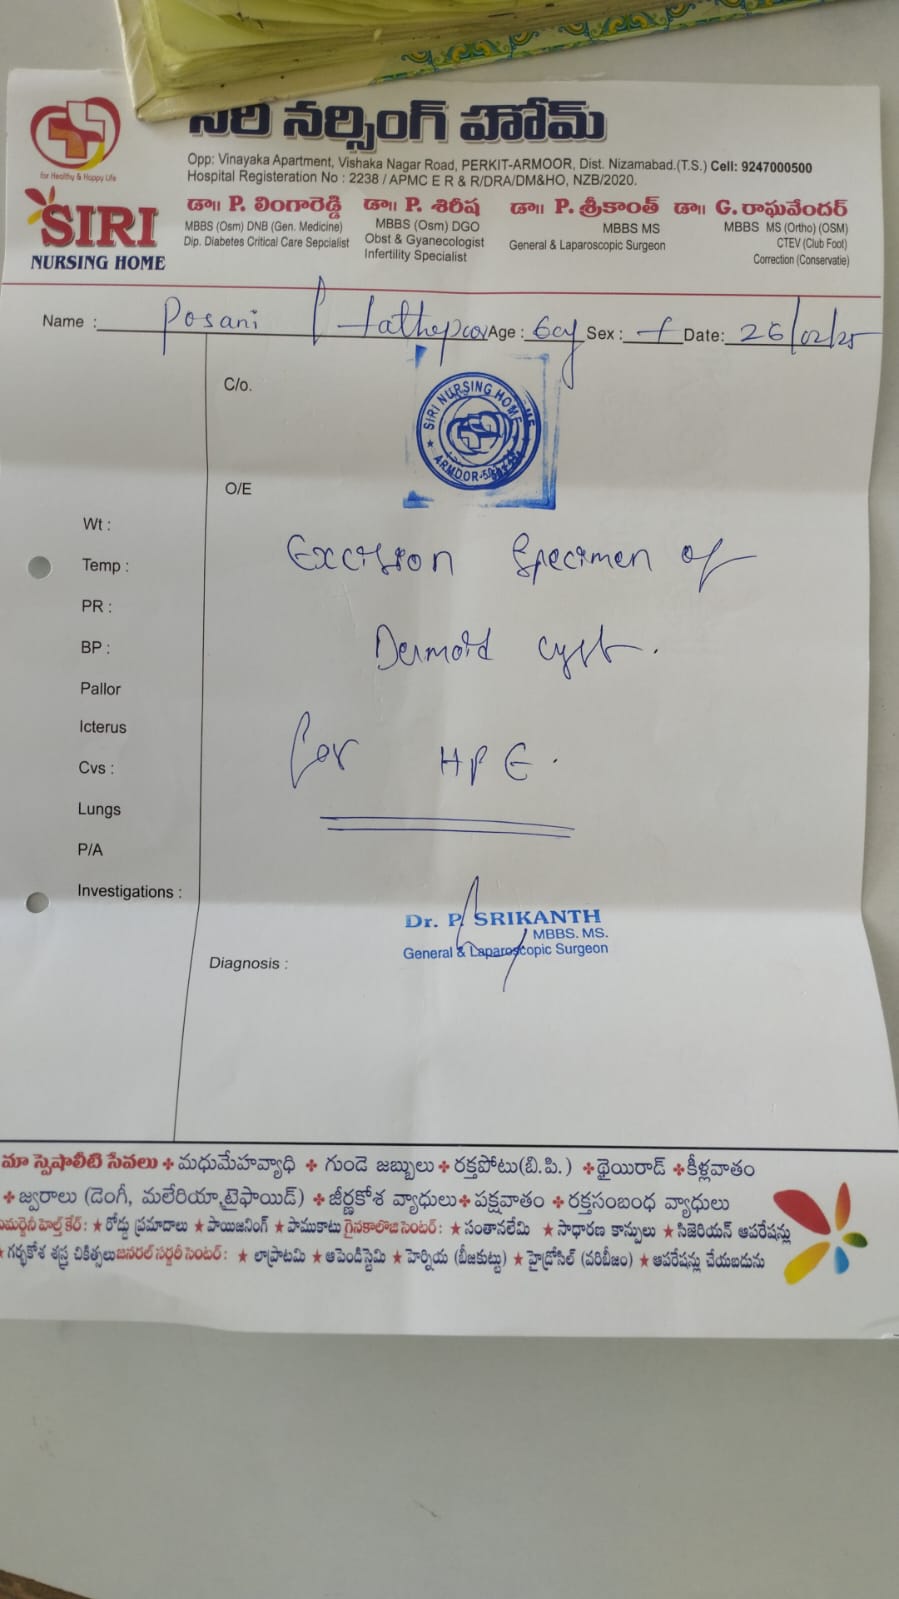 సిరి నర్సింగ్ హోమ్
for Healthy & Happy Life
SIRI
NURSING HOME
Opp: Vinayaka Apartment, Vishaka Nagar Road, PERKIT-ARMOOR, Dist. Nizamabad.(T.S.) Cell: 9247000500
Hospital Registeration No : 2238 / APMC E R & R/DRA/DM&HO, NZB/2020.
డా॥ P. లింగారెడ్డి
MBBS (Osm) DNB (Gen. Medicine)
Dip. Diabetes Critical Care Sepcialist
డా॥ P. శిరీష
MBBS (Osm) DGO
Obst & Gyanecologist
Infertility Specialist
డా॥ P. శ్రీకాంత్
MBBS MS
General & Laparoscopic Surgeon
డా॥ G. రాఘవేందర్
MBBS MS (Ortho) (OSM)
CTEV (Club Foot)
Correction (Conservatie)
Name : Posani Age : Sex : f Date: 26/02/25
C/o.
SIRI NURSING HOME
O/E
Wt :
Temp :
PR :
BP :
Pallor
Icterus
Cvs :
Lungs
P/A
Investigations :
Excision Specimen of
Dermoid cyst.
for HPE.
Dr. P. SRIKANTH
MBBS. MS.
General & Laparoscopic Surgeon
Diagnosis :
మా స్పెషాలిటి సేవలు + మధుమేహవ్యాధి + గుండె జబ్బులు + రక్తపోటు(బి.పి.) + థైయిరాడ్ + కీళ్లవాతం
+ జ్వరాలు (డెంగీ, మలేరియా,టైఫాయిడ్) + జీర్ణకోశ వ్యాధులు + పక్షవాతం + రక్తసంబంధ వ్యాధులు
హెల్త్ కేర్: ★ రోడ్డు ప్రమాదాలు ★ పాయిజనింగ్ ★ పాముకాటు గైనకాలొజి సెంటర్: ★ సంతానలేమి ★ సాధారణ కాన్పులు ★ సిజెరియన్ ఆపరేషన్లు
★ గర్భకోశ శస్త్ర చికిత్సలు జనరల్ సర్జరీ సెంటర్: ★ లాప్రాటమి ★ ఆపెండిస్టెమి ★ హెర్నియ (బీజకుట్టు) ★ హైడ్రోసిల్ (వరిబీజం) ★ ఆపరేషన్లు చేయబడును